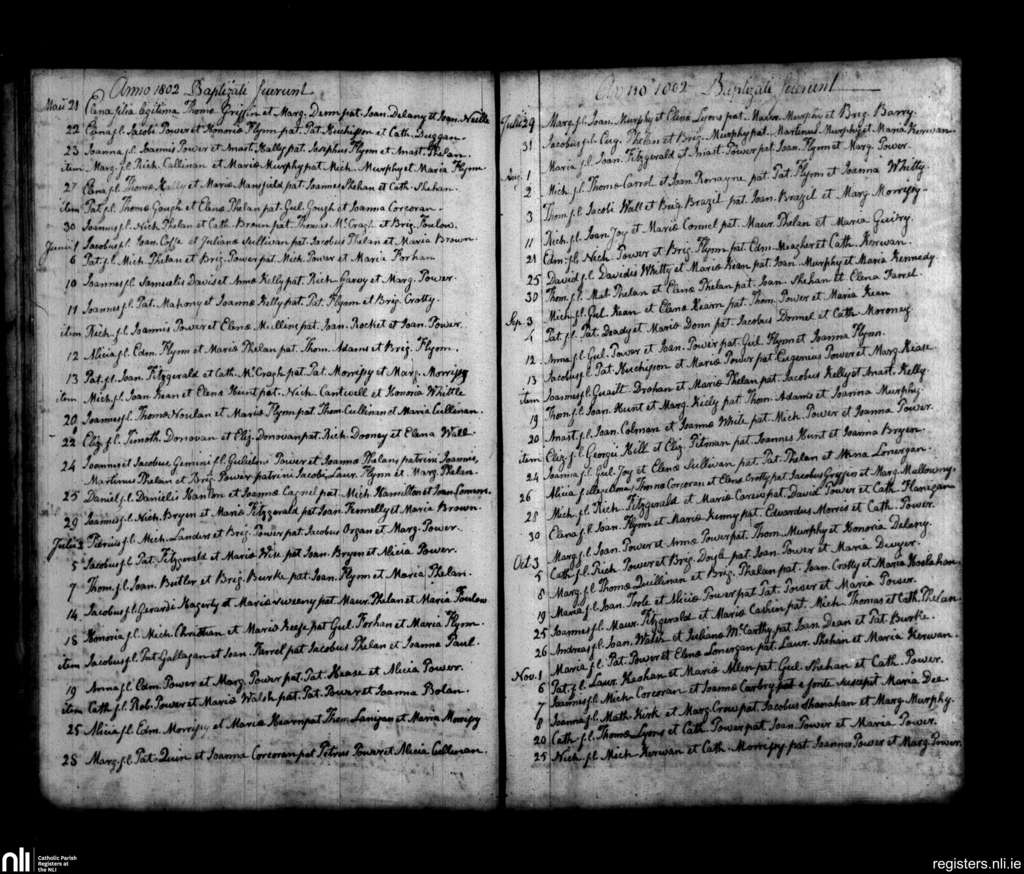 Anno 1802 Baptizati fuerunt
Maii 21 Elena filia legitima Thomæ Griffin et Marg. Derm pat. Joan. Delany et Joan. Neville
22 Elena f.l. Jacobi Power et Honoriæ Flynn pat. Pat. Hutchisson et Cath. Duggan.
23 Joanna f.l. Joannis Power et Anast. Kally pat. Josephus Flynn et Anast. Phelan.
item Marg. f.l. Rich. Callinan et Mariæ Murphy pat. Mich. Murphy et Maria Flynn
27 Elena f.l. Thomæ Kelly et Mariæ Mansfield pat. Joannes Shehan et Cath. Shehan.
item Pat. f.l. Thomæ Gough et Elenæ Phelan pat. Gul. Gough et Joanna Corcoran.
30 Joannes f.l. Nich. Phelan et Cath. Braun pat. Thomas McCragh et Brig. Foulow.
Junii 1 Jacobus f.l. Joan. Coffe et Julianæ Sullivan pat. Jacobus Phelan et Maria Brown.
6 Pat. f.l. Mich. Phelan et Brig. Power pat. Mich. Power et Maria Forhan
10 Joannes f.l. Samuelis Davis et Annæ Kelly pat. Rich. Garvy et Marg. Power.
11 Joannes f.l. Pat. Mahony et Joannæ Kelly pat. Pat. Flynn et Brig. Crotty.
item Rich. f.l. Joannis Power et Elenæ Mulline pat. Joan. Rocket et Joan. Power.
12 Alicia f.l. Edm. Flynn et Mariæ Phelan pat. Thom. Adams et Brig. Flynn.
13 Pat. f.l. Joan. Fitzgerald et Cath. McCragh pat. Pat. Morrisy et Marg. Morrissy
item Mich. f.l. Joan. Kean et Elenæ Hunt pat. Nich. Cantwell et Honora Whittle
20 Joannes f.l. Thomæ Noulan et Mariæ Flynn pat. Thom. Cullinan et Maria Cullinan.
22 Eliz. f.l. Timoth. Donovan et Eliz. Donovan pat. Rich. Dooney et Elena Wall.
24 Joannes et Jacobus Gemini f.l. Gulielmi Power et Joannæ Phelan patrini Joannis,
Martinus Phelan et Brig. Power patrini Jacobi, Laur. Flynn et Marg. Phelan.
25 Daniel f.l. Danielis Hanlon et Joannæ Cagnel pat. Mich. Hamilton et Joan. Connors.
29 Joannes f.l. Nich. Bryen et Mariæ Fitzgerald pat. Joan. Kennelly et Maria Brown.
Julii 2 Petrus f.l. Mich. Landers et Brig. Power pat. Jacobus Organ et Marg. Power.
5 Jacobus f.l. Pat. Fitzgerald et Mariæ Wise pat. Joan. Bryen et Alicia Power.
7 Thom. f.l. Joan. Butler et Brig. Burke pat. Joan. Flynn et Maria Phelan.
14 Jacobus f.l. Gerardi Hagerty et Mariæ Sweeny pat. Maur. Phelan et Maria Foulow
18 Honoria f.l. Mich. Christian et Mariæ Keefe pat. Gul. Forhan et Maria Flynn.
item Jacobus f.l. Pat. Gallagan et Joan. Farrel pat. Jacobus Phelan et Joanna Paul
19 Anna f.l. Edm. Power et Marg. Power pat. Pat. Kease et Alicia Power.
item Cath. f.l. Rob. Power et Mariæ Walsh pat. Pat. Power et Joanna Bolan.
25 Alicia f.l. Edm. Morrissy et Mariæ Kearn pat. Thom. Lanigan et Maria Morrissy
28 Marg. f.l. Pat. Quin et Joanna Corcoran pat. Petrus Power et Alicia Cullinan.
Anno 1802 Baptizati fuerunt
Julii 29 Marg. f.l. Joan. Murphy et Elenæ Lyons pat. Murphy et Brig. Barry.
31 Jacobus f.l. Eug. Phelan et Brig. Murphy pat. Martinus Murphy et Maria Kerwan.
Aug. 1 Maria f.l. Joan. Fitzgerald et Anast. Power pat. Joan. Flynn et Marg. Power.
2 Mich. f.l. Thomæ Carrol et Joan. Ronayne pat. Pat. Flynn et Joanna Whitty
3 Thom. f.l. Jacobi Wall et Brig. Brazil pat. Joan. Brazil et Marg. Morrissy.
11 Rich. f.l. Joan. Joy et Mariæ Connel pat. Maur. Phelan et Maria Guiry.
21 Edm. f.l. Nich. Power et Brig. Flynn pat. Edm. Meagher et Cath. Kerwan.
25 David f.l. Davidis Whitty et Mariæ Kean pat. Joan. Murphy et Maria Kennedy
30 Thom. f.l. Mat. Phelan et Elenæ Phelan pat. Joan. Shehan et Elena Farel.
Sep. 3 Mich. f.l. Gul. Kean et Elenæ Kearn pat. Thom. Power et Maria Kean
4 Pat. f.l. Pat. Deady et Mariæ Donn pat. Jacobus Donnel et Cath. Moroney
12 Anna f.l. Gul. Power et Joan. Power pat. Gul. Flynn et Joanna Flynn.
13 Jacobus f.l. Pat. Hutchisson et Mariæ Power pat. Eugenius Power et Marg. Kease
item Joannes f.l. Gualt. Drohan et Mariæ Phelan pat. Jacobus Kelly et Anast. Kelly.
19 Thom. f.l. Joan. Hunt et Marg. Kiely pat. Thom. Adams et Joanna Murphy
20 Anast. f.l. Joan. Colman et Joannæ White pat. Mich. Power et Joanna Power.
item Eliz. f.l. Georgii Hill et Eliz. Pitman pat. Joannes Hunt et Joanna Bryen.
24 Joanna f.l. Gul. Joy et Elenæ Sullivan pat. Pat. Phelan et Anna Lonergan.
26 Alicia Thomæ Corcoran et Elenæ Crotty pat. Jacobus Griffin et Marg. Mullowny.
28 Mich. f.l. Rich. Fitzgerald et Mariæ Carew pat. David Power et Cath. Flanigan
30 Elena f.l. Joan. Flynn et Mariæ Kenny pat. Edwardus Morris et Cath. Power.
Oct. 3 Marg. f.l. Joan. Power et Annæ Power pat. Thom. Murphy et Honoria Delany.
5 Cath. f.l. Rich. Power et Brig. Doyle pat. Joan. Power et Maria Dwyer.
8 Marg. f.l. Thomæ Quillinan et Brig. Phelan pat. Joan. Crotty et Maria Hoolahan.
19 Maria f.l. Joan. Toole et Aliciæ Power pat. Pat. Power et Maria Power.
25 Joannes f.l. Maur. Fitzgerald et Mariæ Cashin pat. Mich. Thomas et Cath. Phelan.
26 Andreas f.l. Joan. Walsh et Julianæ McCarthy pat. Joan. Dean et Pat. Burke.
Nov. 1 Maria f.l. Pat. Power et Elenæ Lonergan pat. Laur. Shehan et Maria Kerwan.
6 Pat. f.l. Laur. Keohan et Mariæ Allen pat. Gul. Shehan et Cath. Power.
7 Joannes f.l. Mich. Corcoran et Joannæ Corbry pat e fonte suscept Maria Dee.
8 Joanna f.l. Math. Kirk et Marg. Crow pat. Jacobus Shanahan et Marg. Murphy.
20 Cath. f.l. Thomæ Lyons et Cath. Power pat. Joan. Power et Maria Power.
25 Nich. f.l. Mich. Kerwan et Cath. Morrissy pat. Joannes Power et Marg. Power.
nli
Catholic Parish
Registers at
the NLI
registers.nli.ie